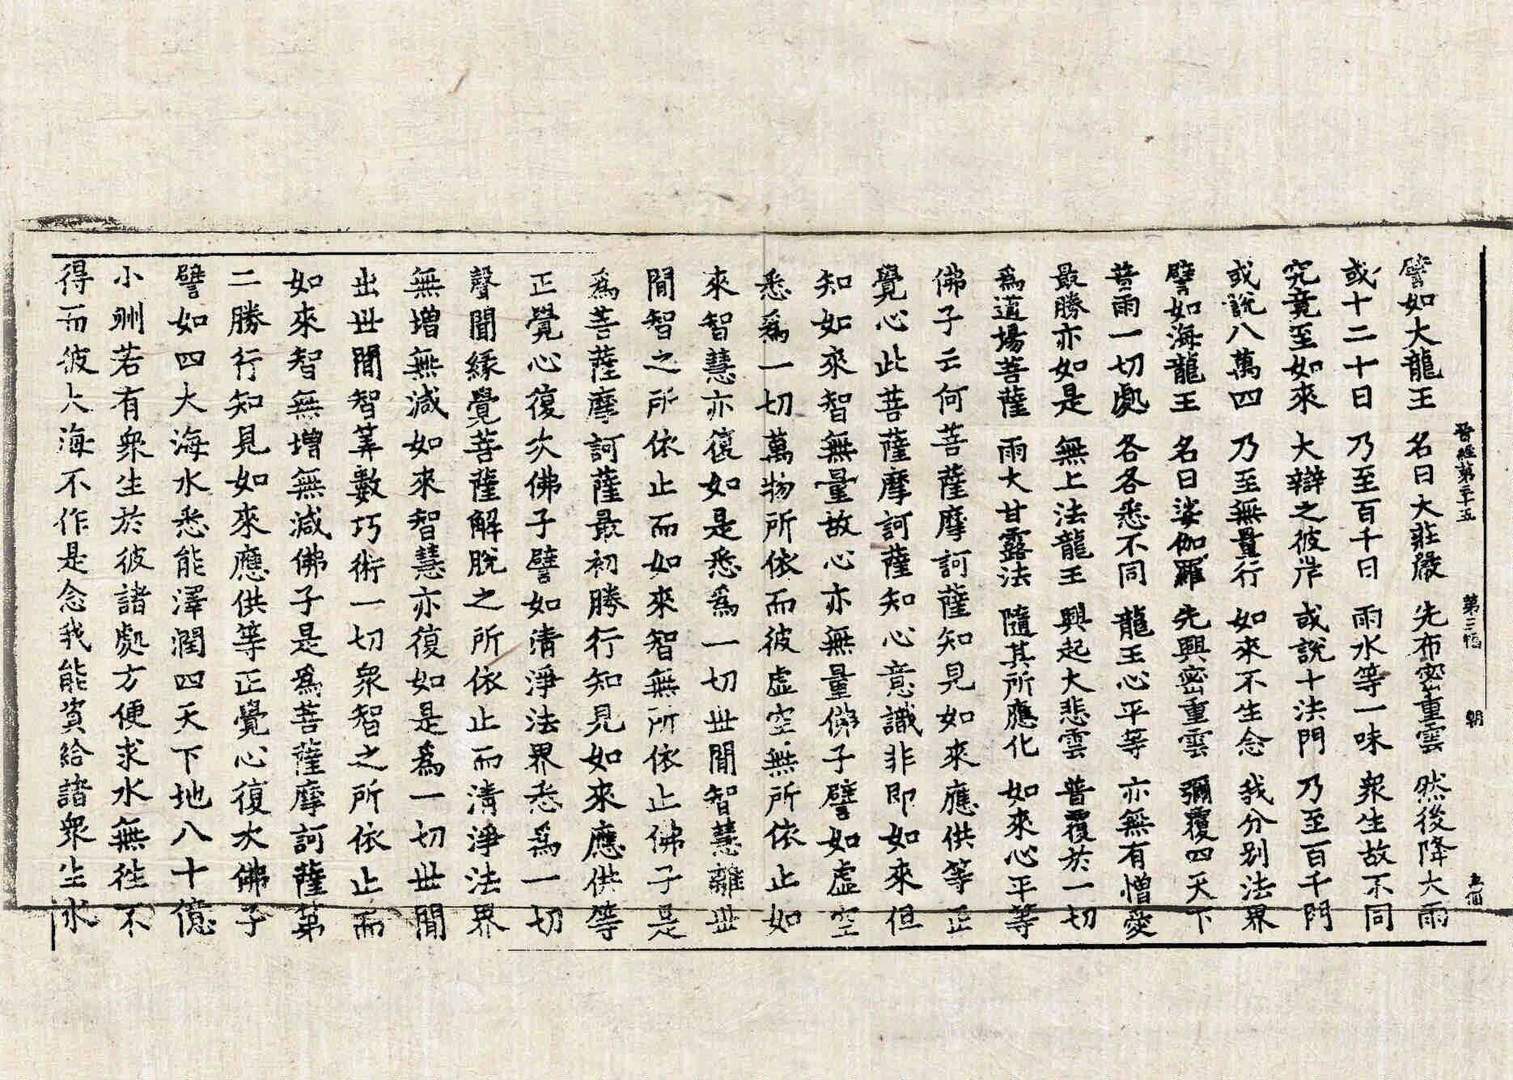 晉經第三十五　第三幅　朝
譬如大龍王　名曰大莊嚴　先布密重雲　然後降大雨
或十二十日　乃至百千日　雨水等一味　衆生故不同
究竟至如來　大辯之彼岸　或說十法門　乃至百千門
或說八萬四　乃至無量行　如來不生念　我分別法界
譬如海龍王　名曰娑伽羅　先興密重雲　彌覆四天下
普雨一切處　各各悉不同　龍王心平等　亦無有憎愛
最勝亦如是　無上法龍王　興起大悲雲　普覆於一切
爲道場菩薩　雨大甘露法　隨其所應化　如來心平等
佛子云何菩薩摩訶薩知見如來應供等正
覺心此菩薩摩訶薩知心意識非即如來但
知如來智無量故心亦無量佛子譬如虛空
悉爲一切萬物所依而彼虛空無所依止如
來智慧亦復如是悉爲一切世間智慧離世
間智之所依止而如來智無所依止佛子是
爲菩薩摩訶薩最初勝行知見如來應供等
正覺心復次佛子譬如清淨法界悉爲一切
聲聞緣覺菩薩解脫之所依止而清淨法界
無增無減如來智慧亦復如是爲一切世間
出世間智筭數巧術一切衆智之所依止而
如來智無增無減佛子是爲菩薩摩訶薩第
二勝行知見如來應供等正覺心復次佛子
譬如四大海水悉能澤潤四天下地八十億
小洲若有衆生於彼諸處方便求水無往不
得而彼大海不作是念我能資給諸衆生水